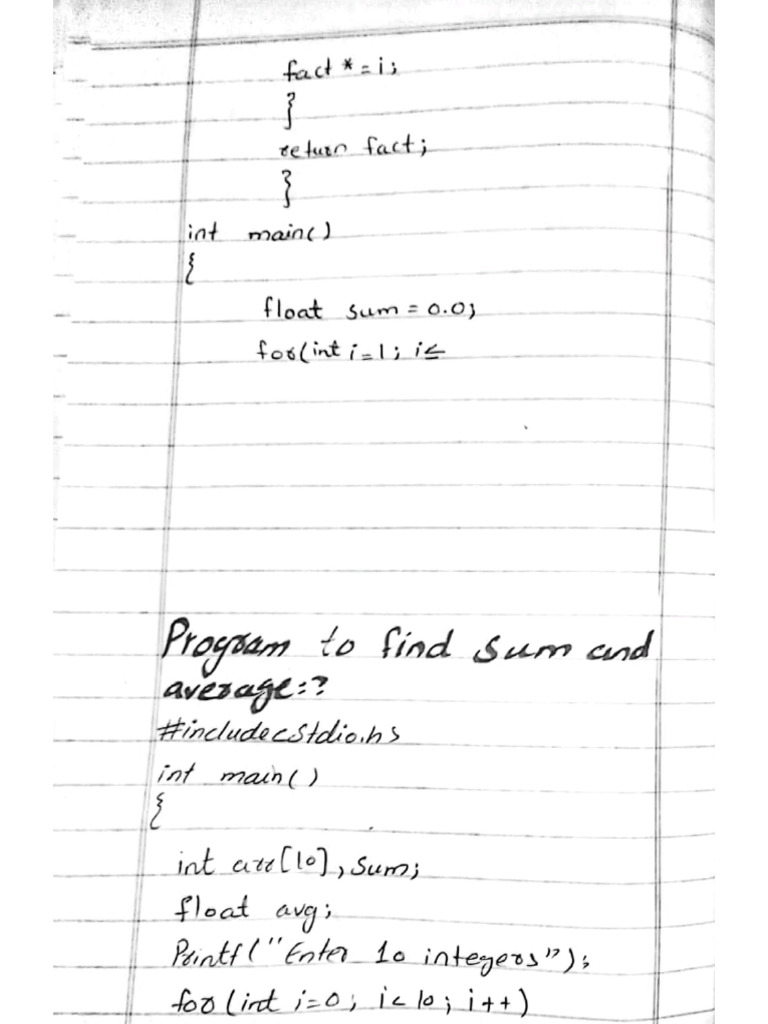 fact *= i;
}
return fact;
}
int main()
{
float sum = 0.0;
for(int i=1; i≤
Program to find sum and
average:?
#include<stdio.h>
int main()
{
int arr[10], sum;
float avg;
Printf("Enter 10 integers");
for (int i=0; i<10; i++)